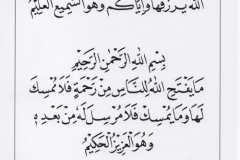 الله يرزقها وإياكم وهو السميع العليم
بِسْمِ اللهِ الرَّحْمٰنِ الرَّحِيْمِ
مَا يَفْتَحِ اللهُ لِلنَّاسِ مِنْ رَّحْمَةٍ فَلَا مُمْسِكَ
لَهَا وَمَا يُمْسِكْ فَلَا مُرْسِلَ لَهٗ مِنْ بَعْدِهٖ
وَهُوَ الْعَزِيْزُ الْحَكِيْمُ